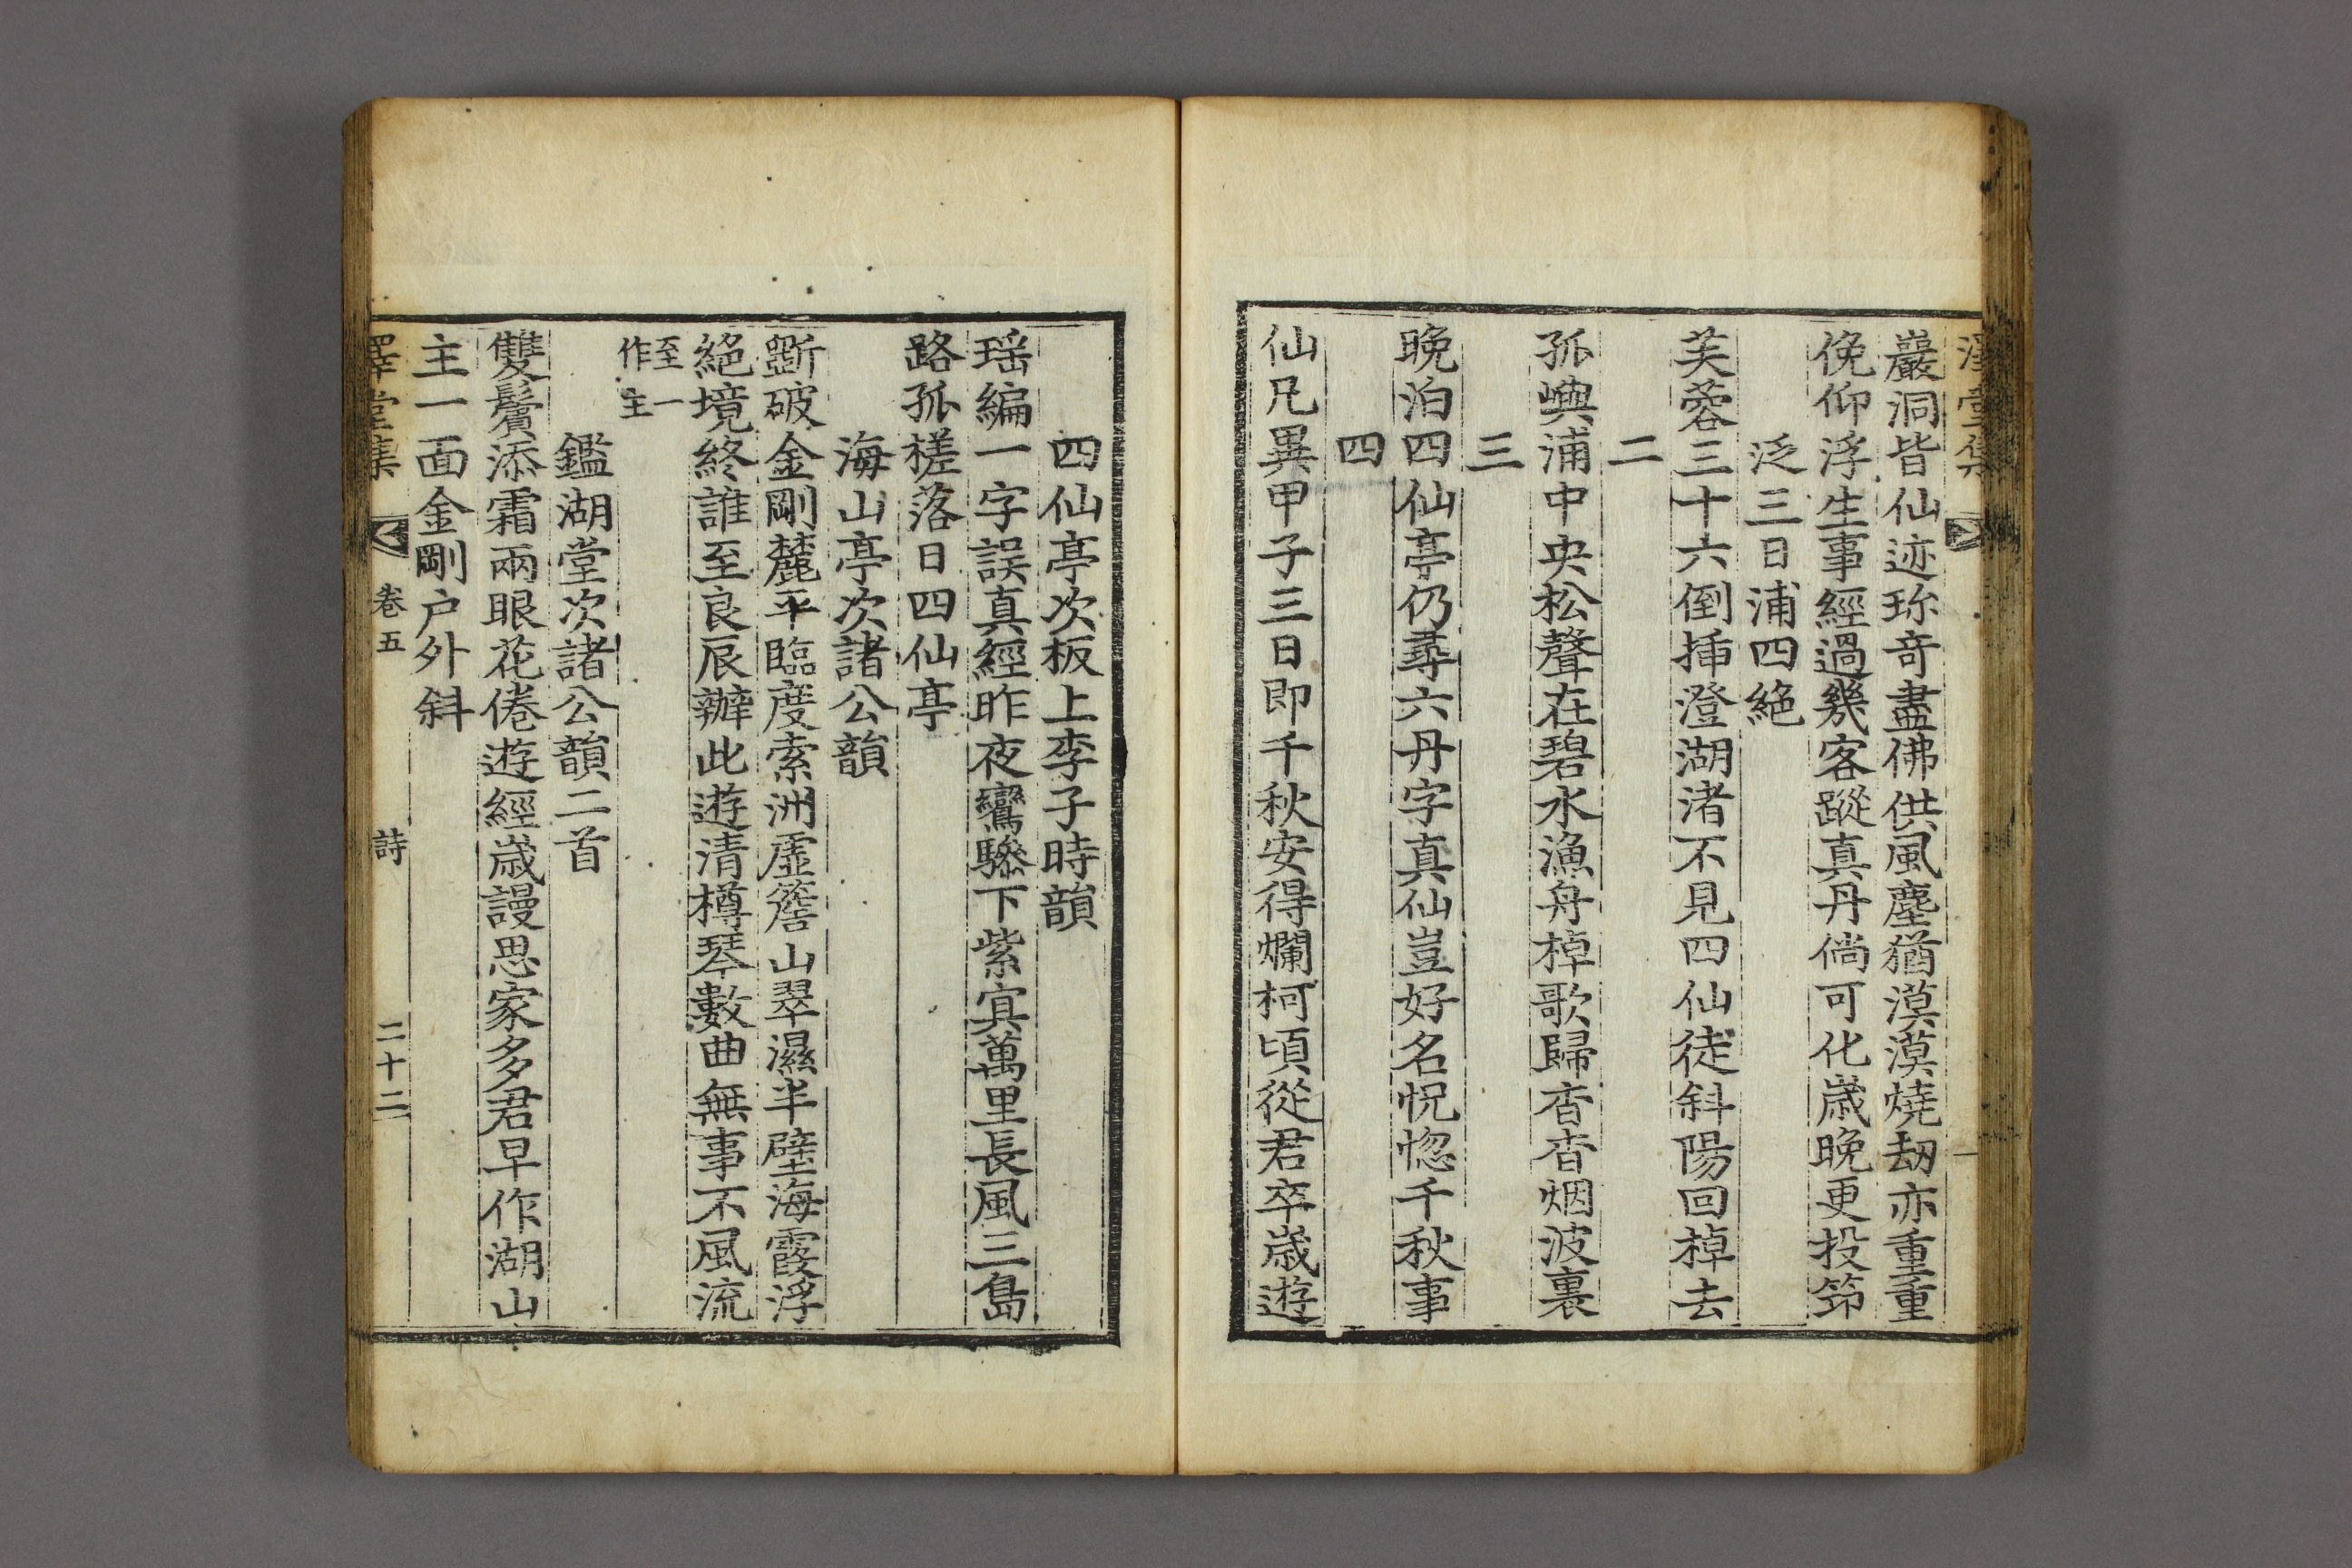 巖洞皆仙迹珎奇盡佛供風塵猶漠漠燒劫亦重重
俛仰浮生事經過幾客蹤真丹倘可化歲晚更投筇
泛三日浦四絕
芙蓉三十六倒揷澄湖渚不見四仙徒斜陽回棹去
二
孤嶼浦中央松聲在碧水漁舟棹歌歸杳杳烟波裏
三
晚泊四仙亭仍尋六丹字真仙豈好名怳惚千秋事
四
仙凡異甲子三日即千秋安得爛柯頃從君卒歲遊
四仙亭次板上李子時韻
瑶編一字誤真經昨夜鸞驂下紫㝠萬里長風三島
路孤槎落日四仙亭
海山亭次諸公韻
斵破金剛麓平臨度索洲虛簷山翠濕半壁海霞浮
絕境終誰至良辰辦此遊清樽琴數曲無事不風流
至一
作主
鑑湖堂次諸公韻二首
雙鬢添霜兩眼花倦遊經歲謾思家多君早作湖山
主一面金剛户外斜
澤堂集 卷五 詩 二十二